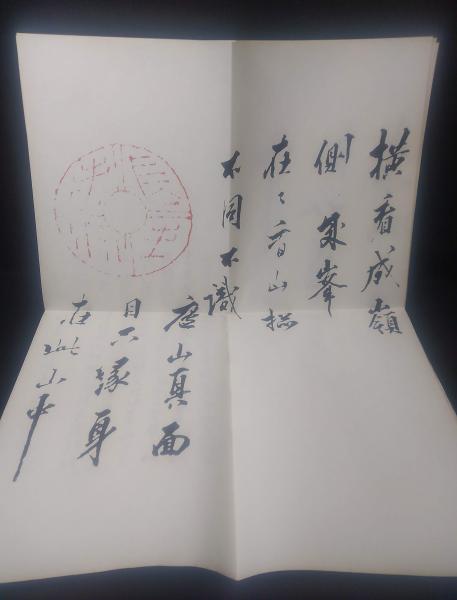 橫看成嶺
側成峯
在々看山揔
不同不識
廬山真面
目只緣身
在此山中